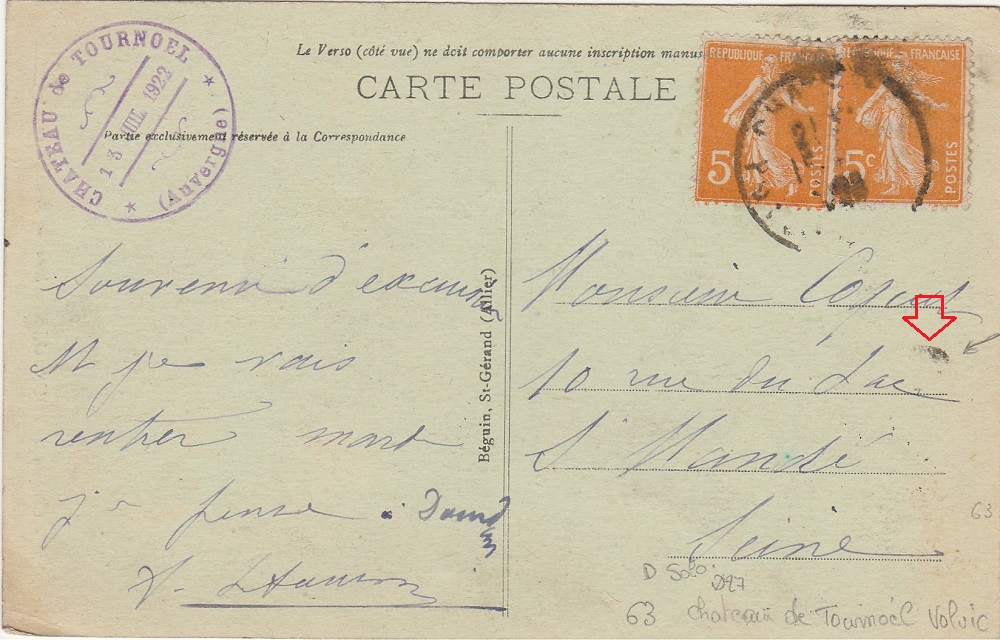 CHATEAU de TOURNOEL
13 JUIL 1922
(Auvergne)
Le Verso (côté vue) ne doit comporter aucune inscription manus
CARTE POSTALE
Partie exclusivement réservée à la Correspondance
REPUBLIQUE FRANÇAISE
5c
POSTES
REPUBLIQUE FRANÇAISE
5c
POSTES
Souvenir
et je vais
rentrer
je pense
Béguin, St-Gérand (Allier)
Monsieur
10 rue du Lac
St Mandé
Seine
63
63 chateau de Tournoël Volvic